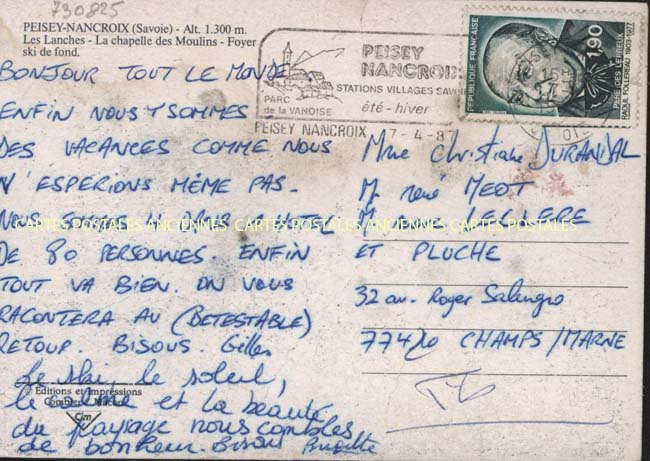 730825
PEISEY-NANCROIX (Savoie) - Alt. 1.300 m.
Les Lanches - La chapelle des Moulins - Foyer
ski de fond.
BONJOUR TOUT LE MONDE
ENFIN NOUS Y SOMMES -
DES VACANCES COMME NOUS
N'ESPERIONS MÊME PAS -
NOUS SOMMES 4 DANS L'HOTEL
DE 80 PERSONNES. ENFIN
TOUT VA BIEN. ON VOUS
RACONTERA AU (DETESTABLE)
RETOUR. BISOUS. Gilles
Le ski, le soleil,
le et la beauté
du paysage nous combles
de bonheur. Bisous Brigitte
© Editions et Impressions
Combier Macon
Cim
PARC
de la VANOISE
PEISEY
NANCROIX
STATIONS VILLAGES SAVOIE
été - hiver
PEISEY NANCROIX 7-4-87
REPUBLIQUE FRANÇAISE
1,90
RAOUL FOLLEREAU 1903-1977
Mme Christiane DURANDAL
M. rené MEOT
M
ET PLUCHE
32 av. Roger Salengro
77420 CHAMPS/MARNE
CARTES POSTALES ANCIENNES CARTES POSTALES ANCIENNES CARTES POSTALES